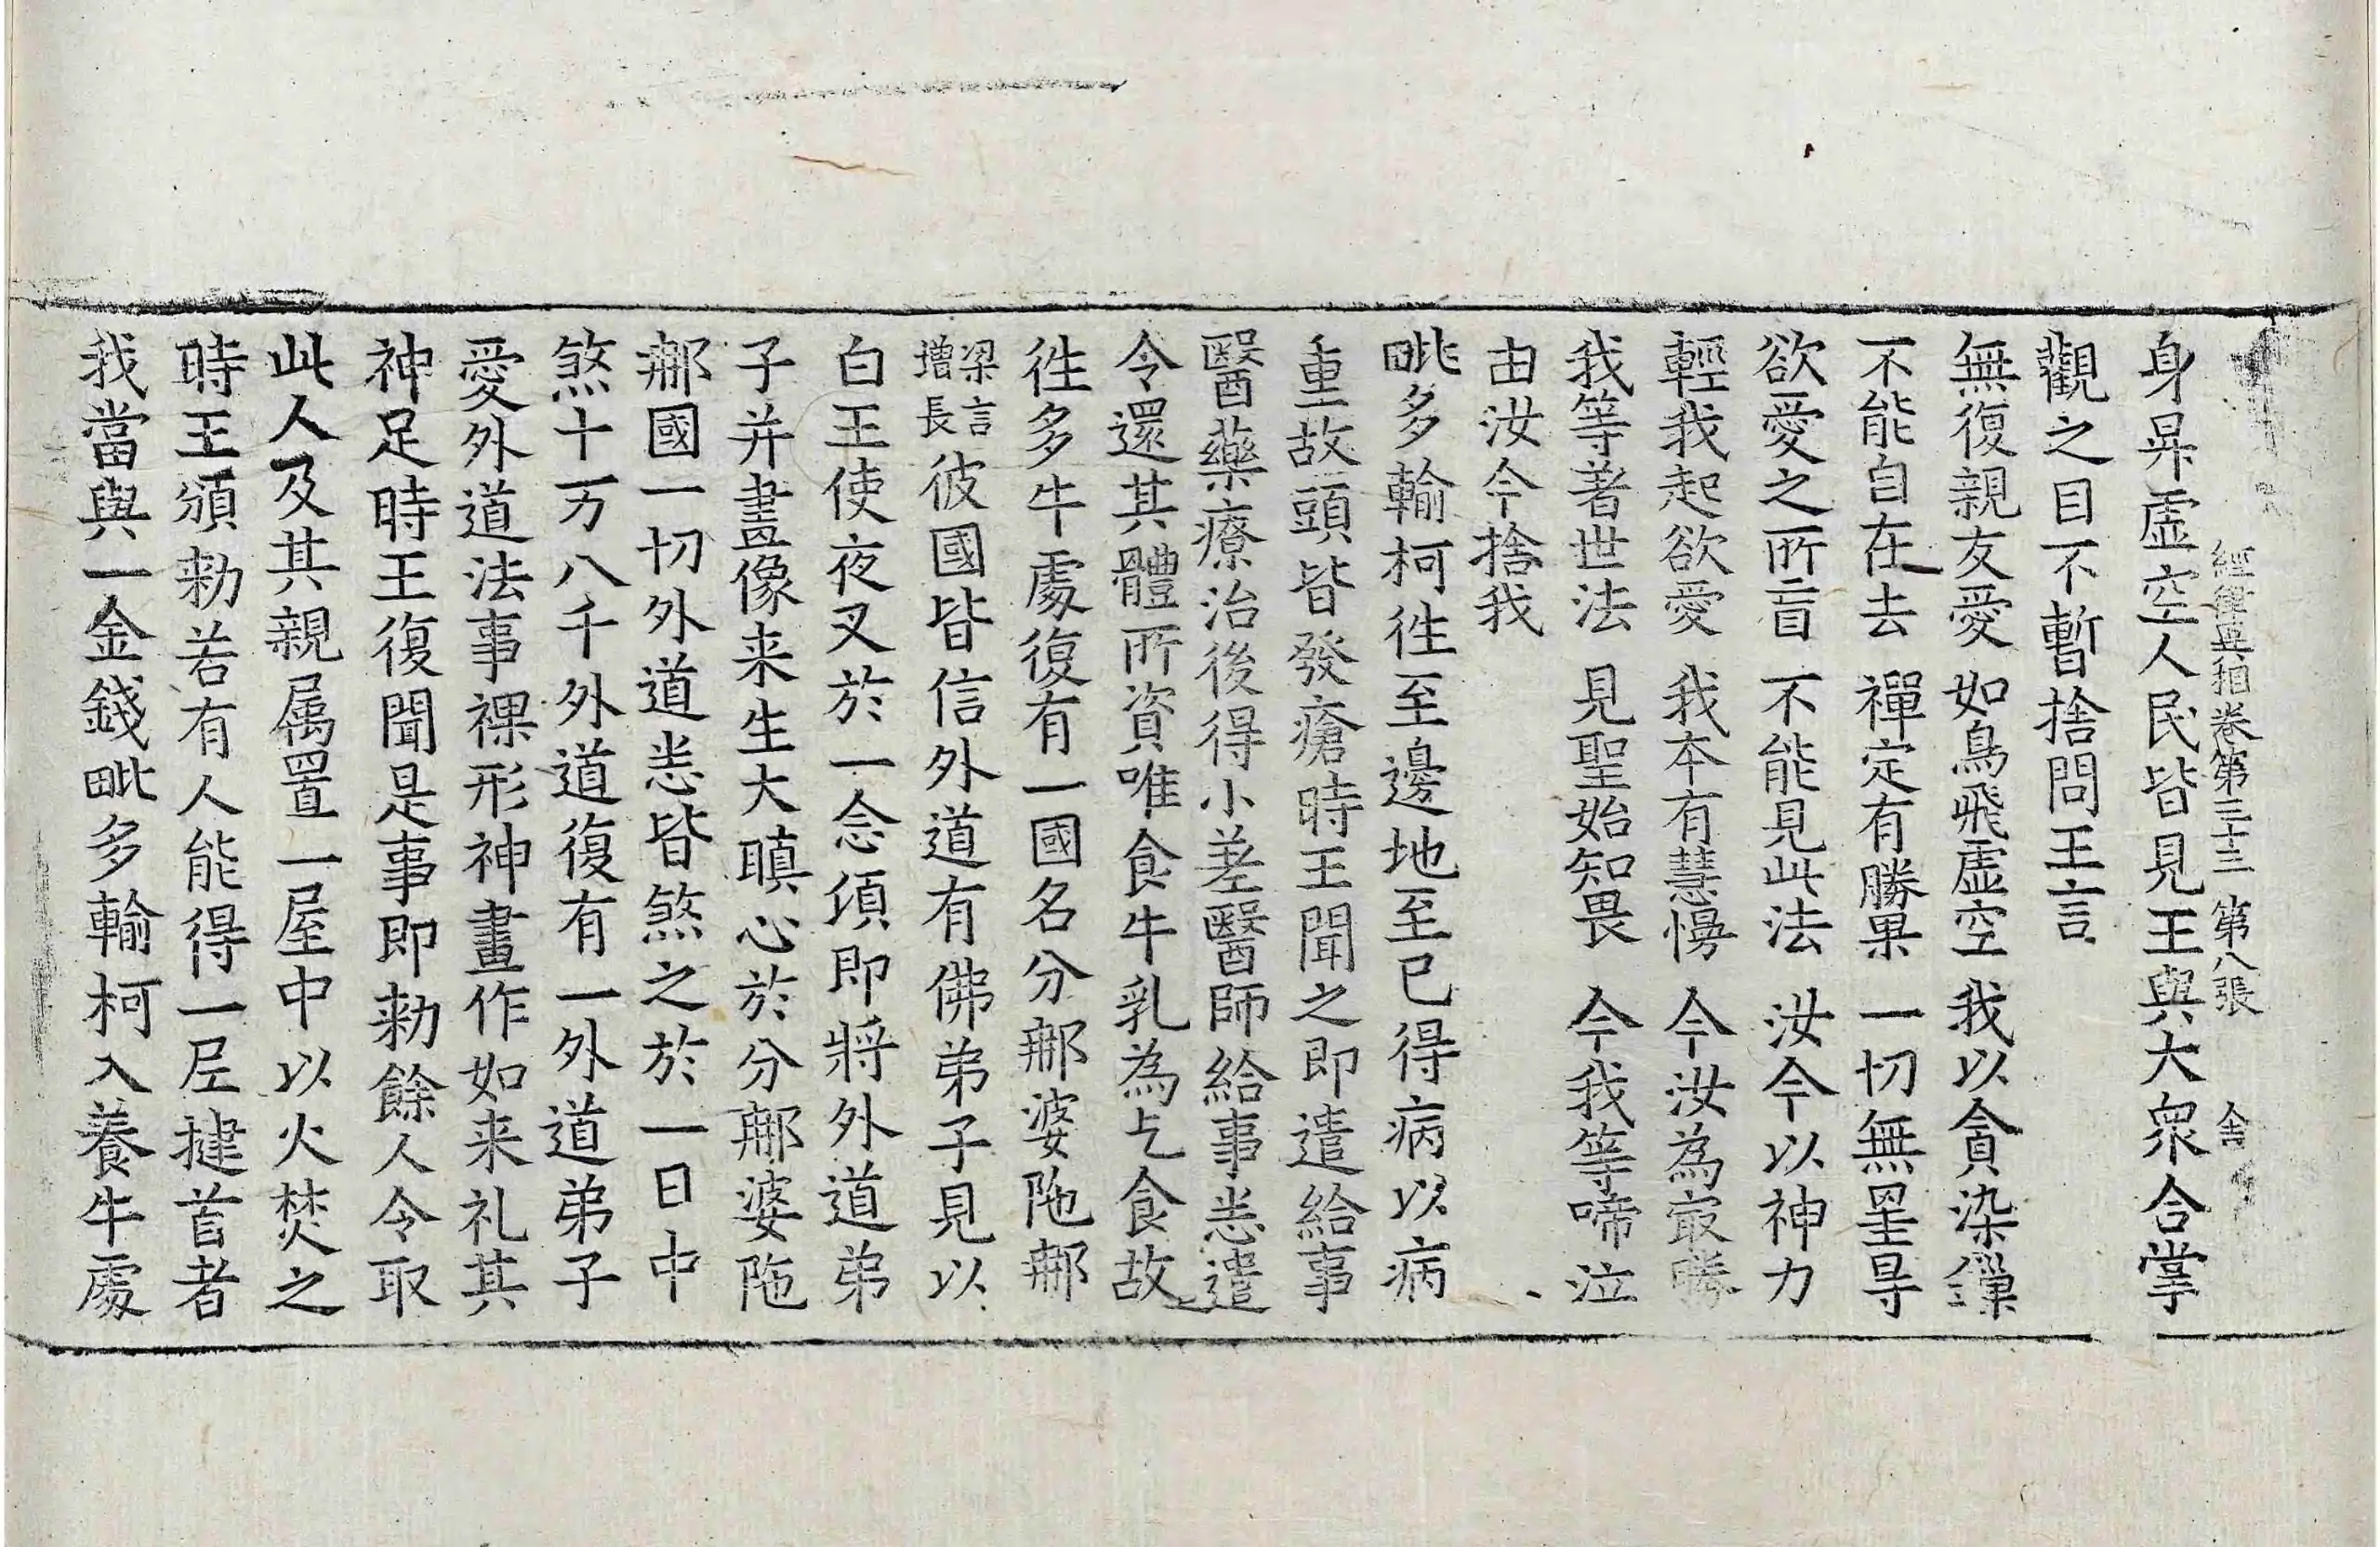 身昇虛空人民皆見王與大衆合掌
經律異相卷第三十三 第八張 舍
觀之目不暫捨問王言
無復親友愛 如鳥飛虛空 我以貪染鏁
不能自在去 禪定有勝果 一切無罣㝵
欲愛之所盲 不能見此法 汝今以神力
輕我起欲愛 我本有慧慢 今汝為㝡勝
我等著世法 見聖始知畏 今我等啼泣
由汝今捨我
毗多輸柯徃至邊地至已得病以病
重故頭皆發瘡時王聞之即遣給事
醫藥療治後得小差醫師給事悉遣
令還其體所資唯食牛乳為乞食故
徃多牛處復有一國名分那婆陁那
梁言
增長
彼國皆信外道有佛弟子見以
白王使夜叉於一念須即將外道弟
子并畫像来生大瞋心於分那婆陁
那國一切外道悉皆煞之於一日中
煞十万八千外道復有一外道弟子
愛外道法事裸形神畫作如来礼其
神足時王復聞是事即勑餘人令取
此人及其親属置一屋中以火焚之
時王頒勑若有人能得一尼揵首者
我當與一金錢毗多輸柯入養牛處